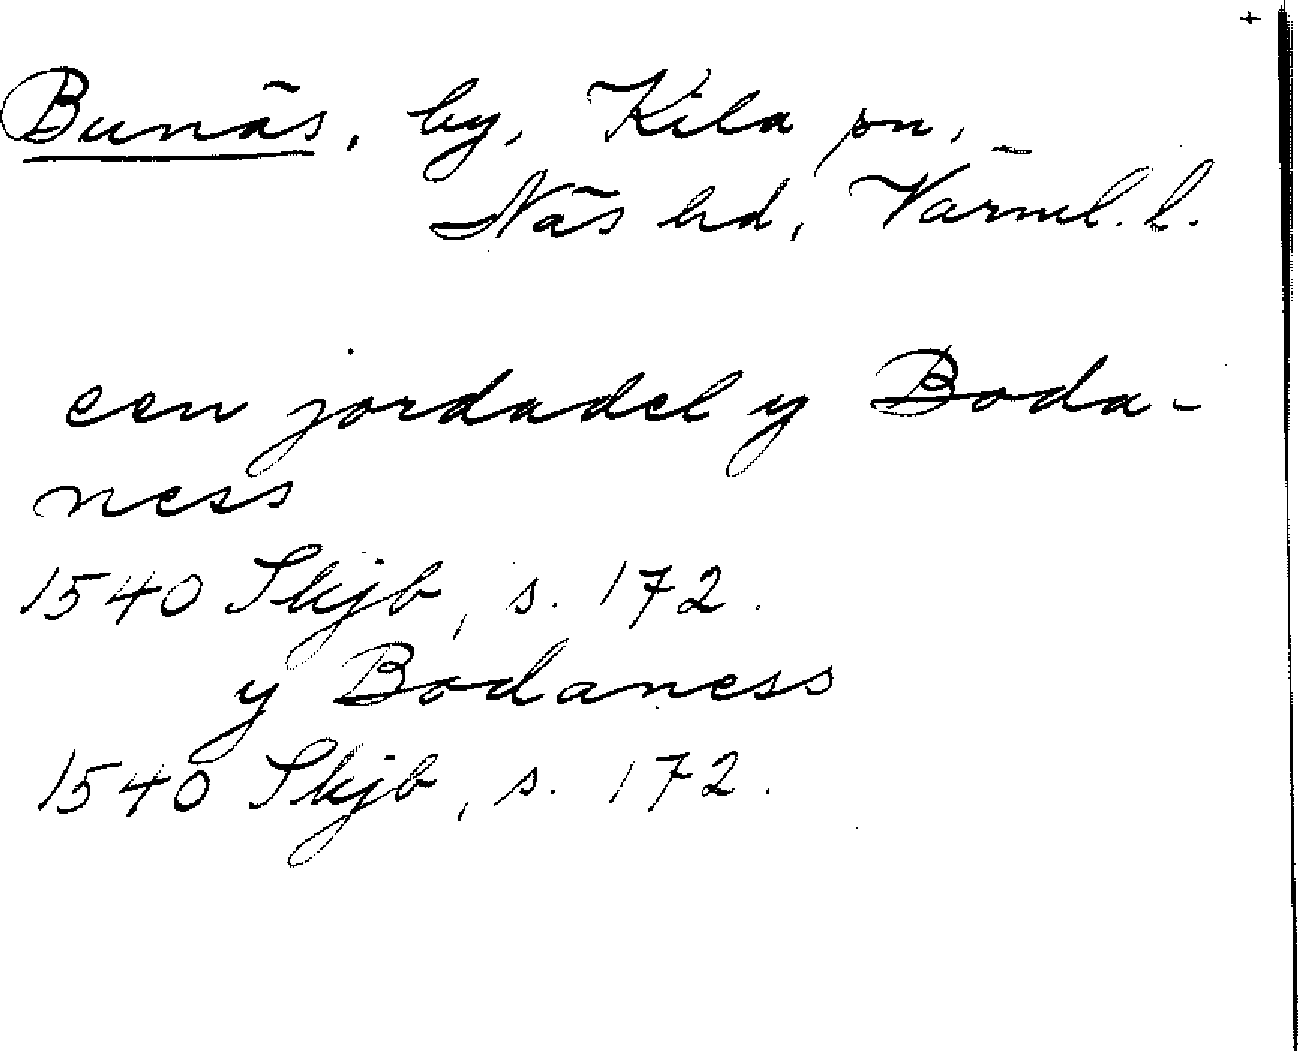 +
Bunäs, by, Kila sn,
Näs hd, Värml. l.
een jordadel y Boda-
ness
1540 Skjb, s. 172.
y Bodaness
1540 Skjb, s. 172.